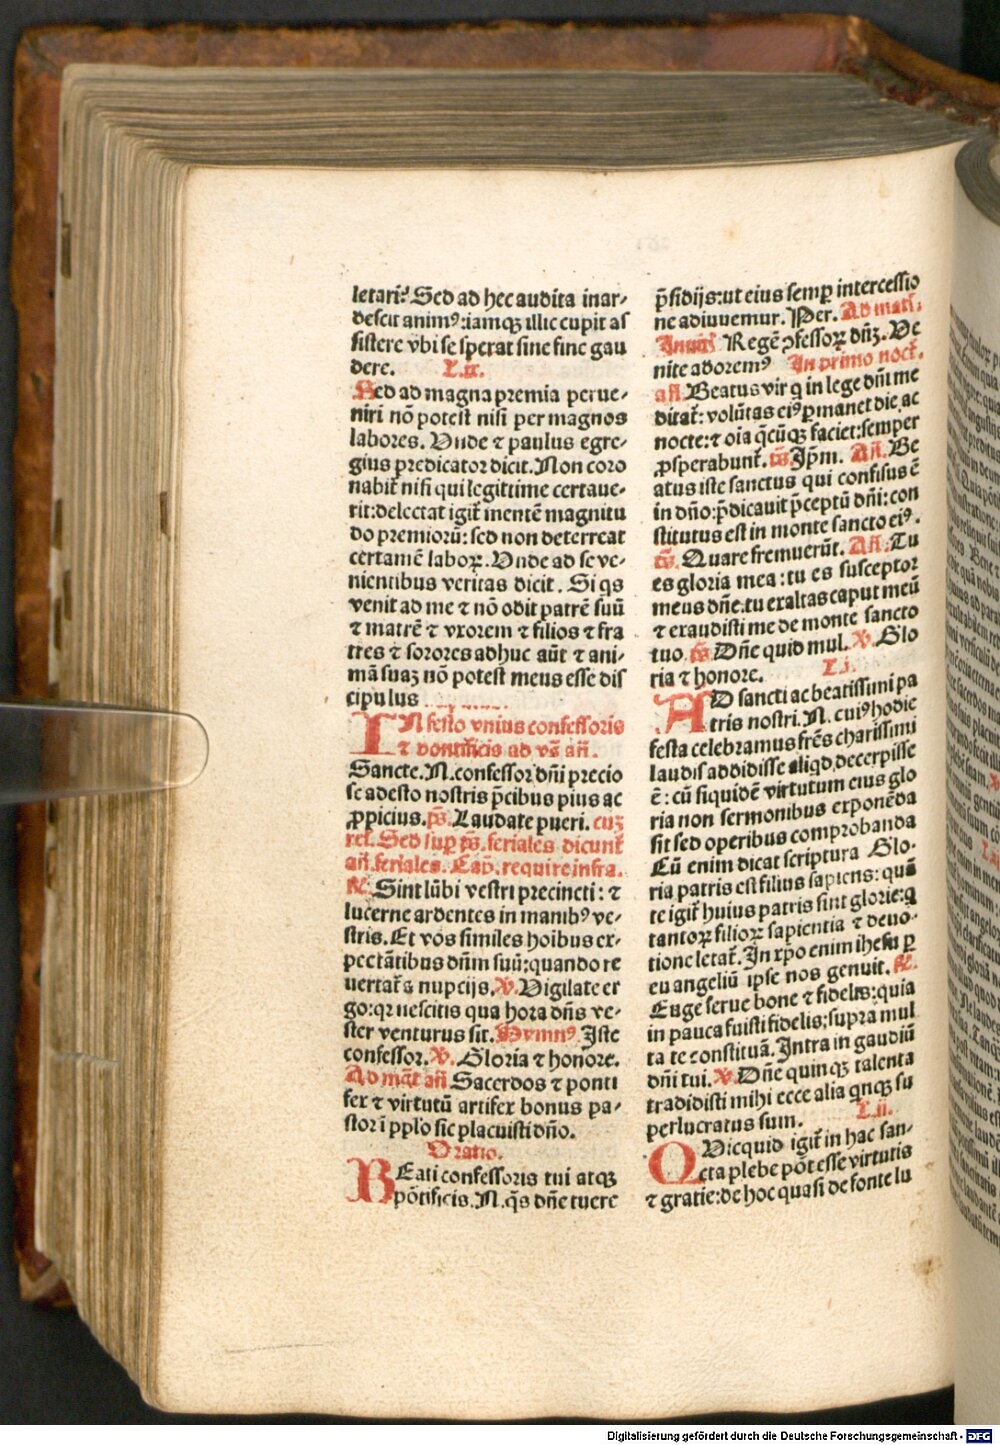 letari? Sed ad hec audita inar-
descit animꝰ: iamqꝫ illic cupit as
sistere vbi se sperat sine fine gau
dere. L.ix.
Sed ad magna premia perue-
niri nō potest nisi per magnos
labores. Vnde ⁊ paulus egre-
gius predicator dicit. Non coro
nabit̄ nisi qui legittime certaue-
rit: delectat igit̄ mentē magnitu
do premiorū: sed non deterreat
certamē laboꝝ. Vnde ad se ve-
nientibus veritas dicit. Si qs
venit ad me ⁊ nō odit patrē suū
⁊ matrē ⁊ vxorem ⁊ filios ⁊ fra
tres ⁊ sorores adhuc aūt ⁊ ani-
mā suaꝫ nō potest meus esse dis
cipulus
IN festo vnius confessoris
⁊ pontificis ad vs̄ añ.
Sancte .N. confessor dñi precio
se adesto nostris p̄cibus pius ac
ꝓpicius. ps̄. Laudate pueri. cuꝫ
rel. Sed sup̄ ps̄. feriales dicunt̄
añ. feriales. Cap̄. require infra.
℟. Sint lūbi vestri precincti: ⁊
lucerne ardentes in manibꝰ ve-
stris. Et vos similes hoibus ex-
pectātibus dñm suū: quando re
uertat̄ a nupcijs. ℣. Vigilate er
go: qꝛ nescitis qua hora dñs ve-
ster venturus sit. Hymnꝰ. Iste
confessor. ℣. Gloria ⁊ honore.
Ad mag̅t añ Sacerdos ⁊ ponti
fex ⁊ virtutū artifex bonus pa-
stor ī pplo sic placuisti dño.
Oratio.
BEati confessoris tui atqꝫ
pōtificis .N. q̄s dñe tuere
p̄sidijs: ut eius semꝑ intercessio
ne adiuuemur. Per. Ad mat̄.
Inuit̄ Regē ꝯfessoꝝ dñꝫ. Ve
nite adoremꝰ In primo noct̄.
añ. Beatus vir q in lege dñi me
ditat̄: volūtas eiꝰ ꝑmanet die ac
nocte: ⁊ oia q̄cūqꝫ faciet: semper
ꝓsperabunt̄. ps̄. Ip̄m. Añ. Be
atus iste sanctus qui confisus ē
in dño: p̄dicauit p̄ceptū dñi: con
stitutus est in monte sancto eiꝰ.
ps̄. Quare fremuerūt. Añ. Tu
es gloria mea: tu es susceptor
meus dñe: tu exaltas caput meū
⁊ exaudisti me de monte sancto
tuo. ps̄ Dñe quid mul. ℣. Glo
ria ⁊ honore. L.i.
AD sancti ac beatissimi pa
tris nostri .N. cuiꝰ hodie
festa celebramus fr̄es charissimi
laudis addidisse aliqd, decerpisse
ē: cū siquidē virtutum eius glo
ria non sermonibus exponēda
sit sed operibus comprobanda
Cū enim dicat scriptura Glo-
ria patris est filius sapiens: quā
te igit̄ huius patris sint glorie: q
tantoꝝ filioꝝ sapientia ⁊ deuo-
tione letat̄. In xpo enim ihesu ꝑ
euangeliū ipse nos genuit. ℟.
Euge serue bone ⁊ fidelis: quia
in pauca fuisti fidelis: supra mul
ta te constituā. Intra in gaudiū
dñi tui. ℣. Dñe quinqꝫ talenta
tradidisti mihi ecce alia qnqꝫ su
perlucratus sum. L.ii.
QVicquid igit̄ in hac san-
cta plebe pōt esse virtutis
⁊ gratie: de hoc quasi de fonte lu
Digitalisierung gefördert durch die Deutsche Forschungsgemeinschaft - DFG